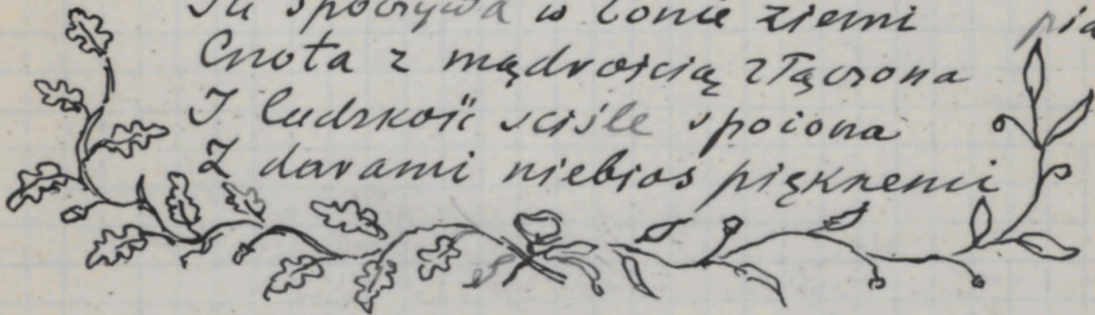 Tu spoczywa w łonie ziemi
Cnota z mądrością złączona
I ludzkość ściśle spoiona
Z darami niebios pięknemi